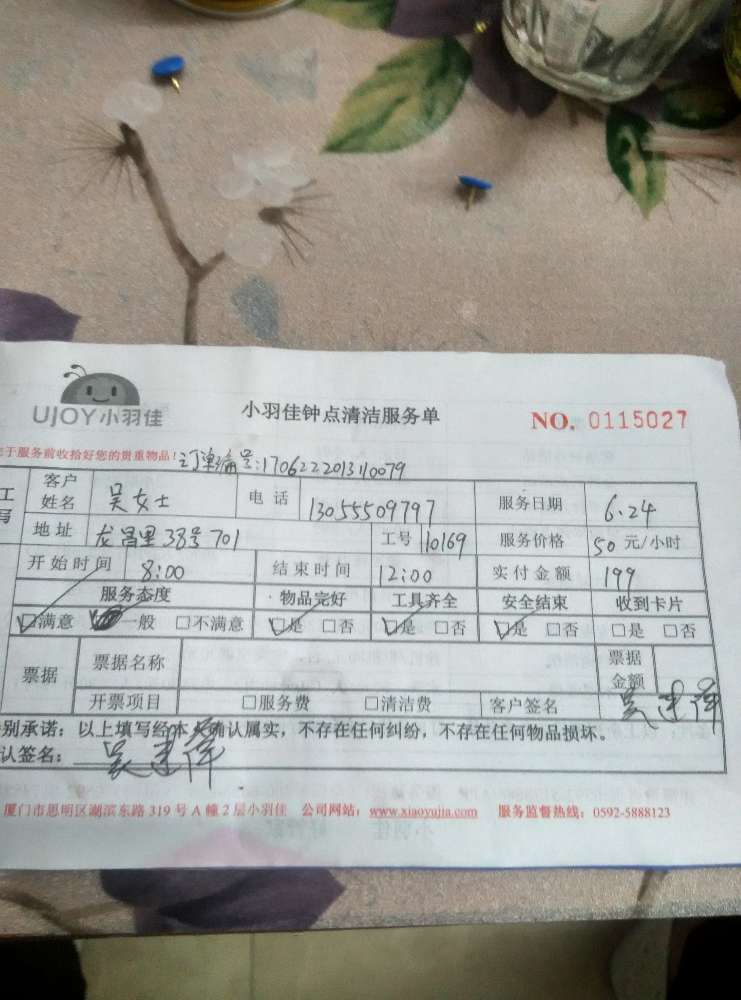 UJOY小羽佳 小羽佳钟点清洁服务单 NO. 0115027
于服务前收拾好您的贵重物品! 订单编号:170622201310079
客户姓名 吴女士 电话 13055509797 服务日期 6.24
地址 龙昌里38号701 工号 110169 服务价格 50 元/小时
开始时间 8:00 结束时间 12:00 实付金额 199
服务态度 物品完好 工具齐全 安全结束 收到卡片
☑满意 一般 □不满意 ☑是 □否 ☑是 □否 ☑是 □否 □是 □否
票据 票据名称 票据金额
开票项目 □服务费 □清洁费 客户签名
别承诺:以上填写经本人确认属实,不存在任何纠纷,不存在任何物品损坏。
认签名:
厦门市思明区湖滨东路 319 号 A 幢 2 层小羽佳 公司网站:www.xiaoyujia.com 服务监督热线:0592-5888123